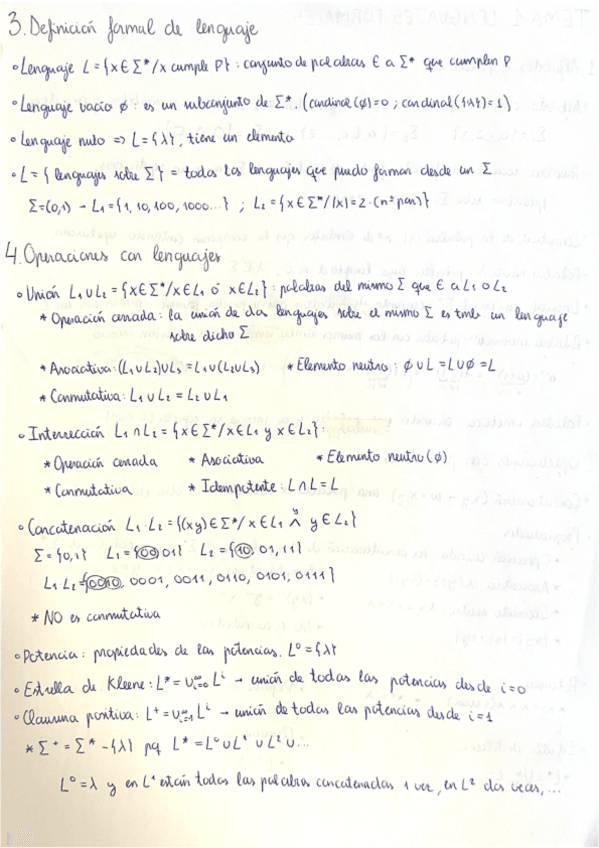 3. Definición formal de lenguaje
• Lenguaje L = {x ∈ Σ* / x cumple P} : conjunto de palabras ∈ a Σ* que cumplen P
• Lenguaje vacío ∅ : es un subconjunto de Σ*. (cardinal(∅)=0 ; cardinal({λ})=1)
• Lenguaje nulo => L = {λ}, tiene un elemento
• L = { lenguajes sobre Σ } = todos los lenguajes que puedo formar desde un Σ
Σ=(0,1) - L₁ = {1, 10, 100, 1000...} ; L₂ = {x ∈ Σ*/ |x|=2· (nº par)}
4. Operaciones con lenguajes
• Unión L₁ ∪ L₂ = {x ∈ Σ* / x ∈ L₁ ó x ∈ L₂} : palabras del mismo Σ que ∈ a L₁ o L₂
* Operación cerrada: la unión de dos lenguajes sobre el mismo Σ es tmb un lenguaje
sobre dicho Σ
* Asociativa: (L₁ ∪ L₂) ∪ L₃ = L₁ ∪ (L₂ ∪ L₃) * Elemento neutro: ∅ ∪ L = L ∪ ∅ = L
* Conmutativa: L₁ ∪ L₂ = L₂ ∪ L₁
• Intersección L₁ ∩ L₂ = {x ∈ Σ* / x ∈ L₁ y x ∈ L₂} :
* Operación cerrada * Asociativa * Elemento neutro (∅)
* Conmutativa * Idempotente: L ∩ L = L
• Concatenación L₁ · L₂ = {(xy) ∈ Σ* / x ∈ L₁ ∧ y ∈ L₂}
y
Σ = {0,1} L₁ = {00, 01} L₂ = {10, 01, 11}
L₁·L₂ = {0010, 0001, 0011, 0110, 0101, 0111}
* NO es conmutativa
• Potencia: propiedades de las potencias. L⁰ = {λ}
• Estrella de Kleene: L* = ∪ᵢ₌₀^∞ Lⁱ → unión de todas las potencias desde i=0
• Clausura positiva: L⁺ = ∪ᵢ₌₁^∞ Lⁱ → unión de todas las potencias desde i=1
* Σ⁺ = Σ* - {λ} pq L* = L⁰ ∪ L¹ ∪ L² ∪ ...
L⁰ = λ y en L¹ están todas las palabras concatenadas 1 vez, en L² dos veces, ...